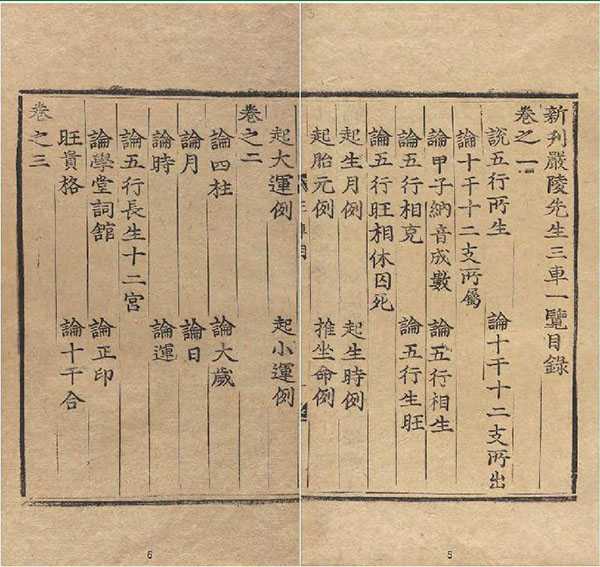 新刋嚴陵先生三車一覽目錄
卷之一
説五行所生　論十干十二支所出
論十干十二支所屬
論甲子納音成數　論五行相生
論五行相克　論五行生旺
論五行旺相休囚死
起生月例　起生時例
起胎元例　推坐命例
5
起大運例　起小運例
卷之二
論四柱　論大歲
論月　論日
論時　論運
論五行長生十二宮
論學堂詞館　論正印
旺貴格　論十干合
卷之三
6